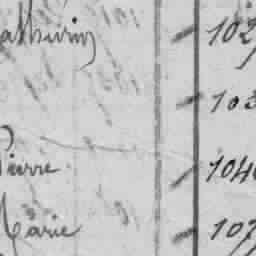 athurin 102
103
Pierre 104
Marie 107